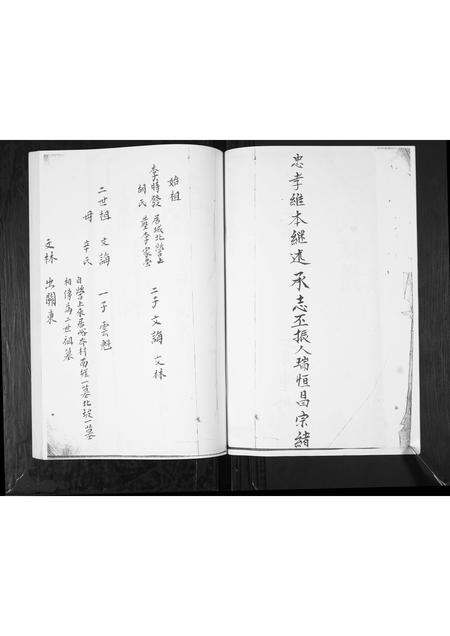 忠孝維本继述承志丕振人瑞恒昌宗緒
始祖
李時發 居城北營上 二子 文誨 文林
胡氏 葬李家墓
二世祖 文誨 一子 雲魁
母 辛氏
自營上來居 本村南堐一墓北堐一墓
相傳為二世祖墓
文林 出關東